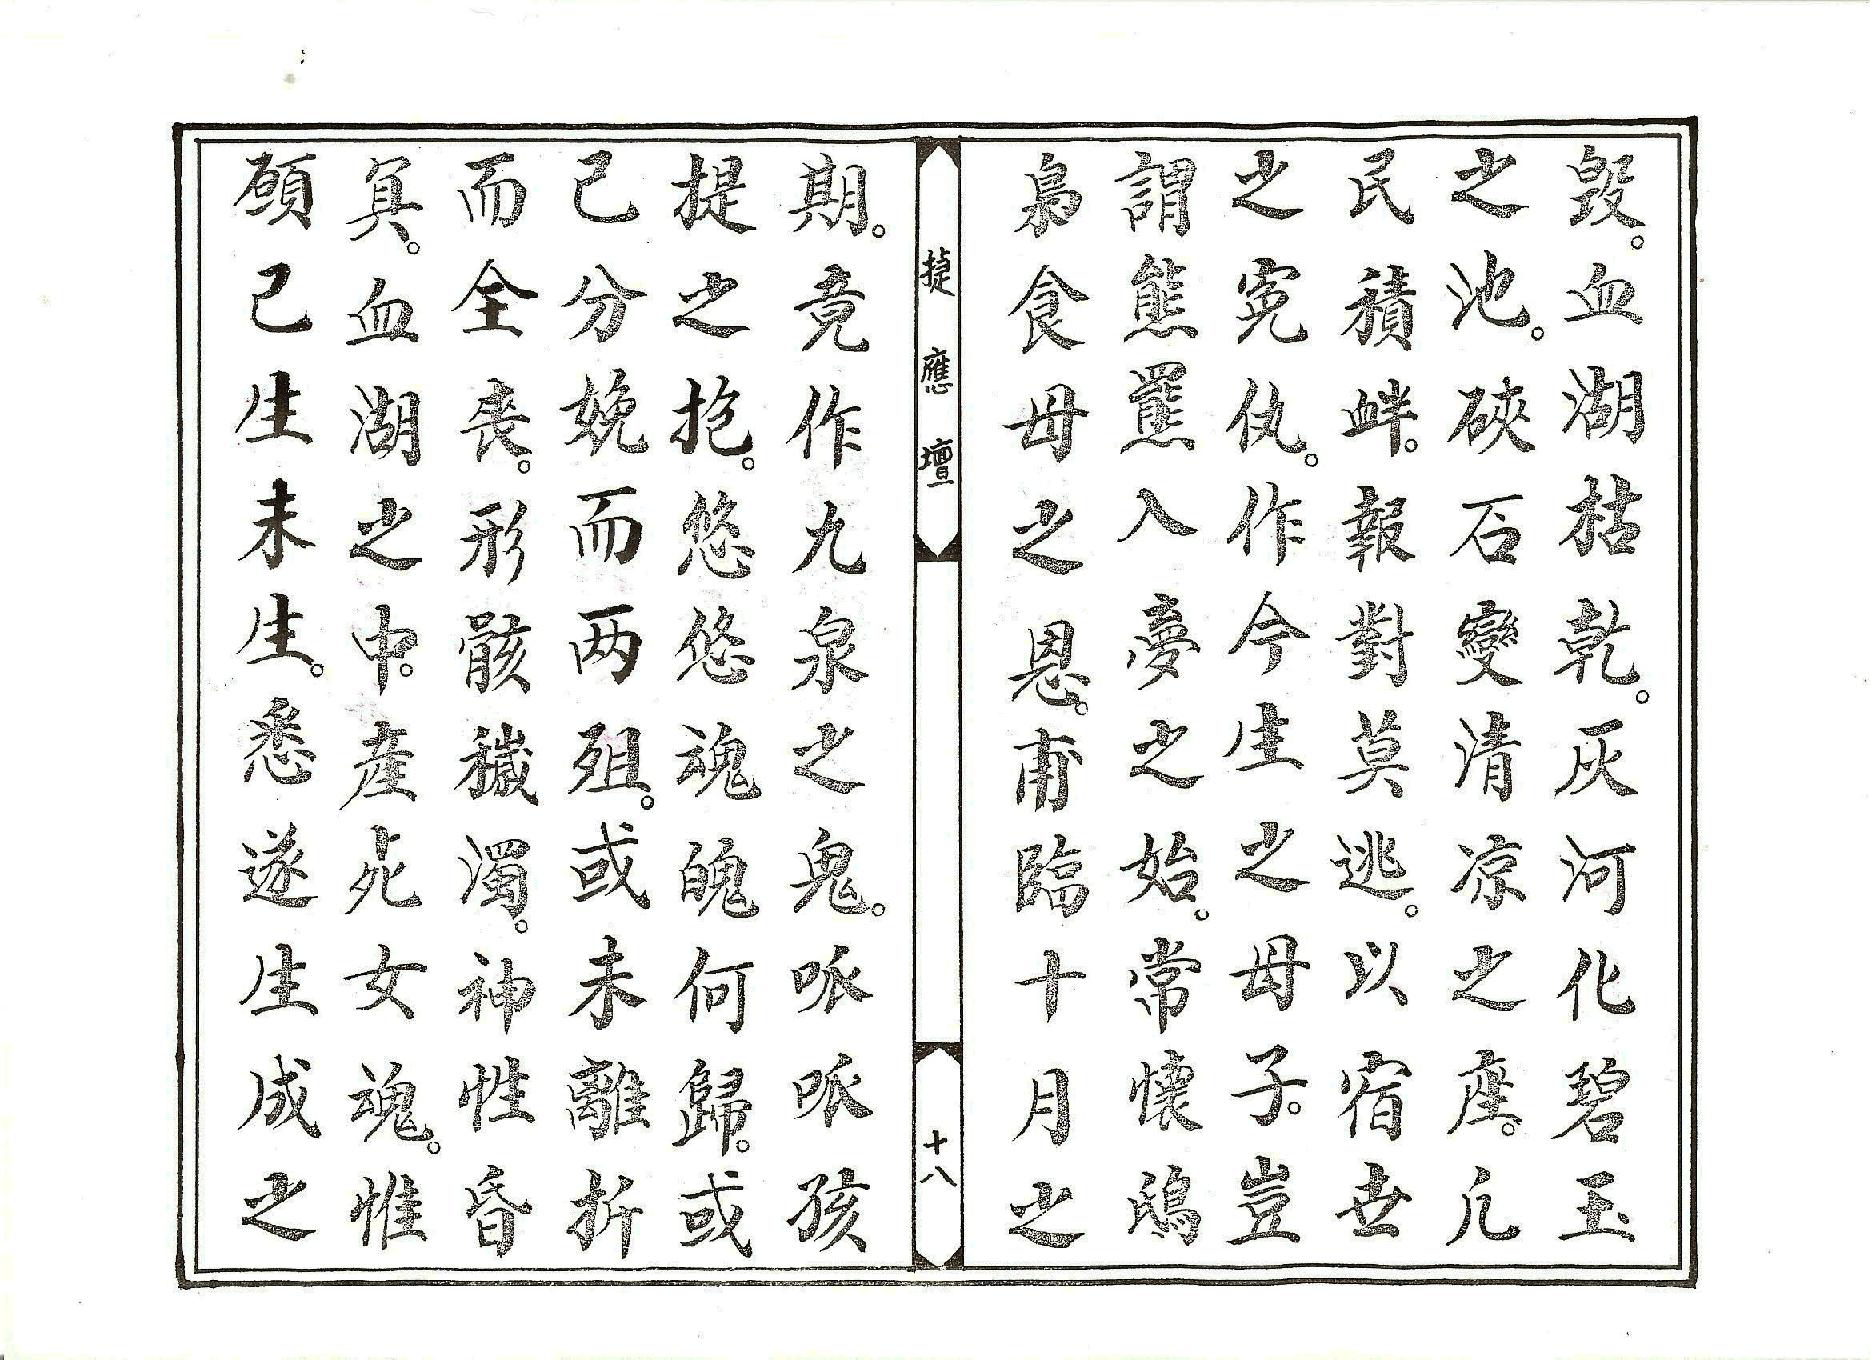 毀。血湖枯乾。灰河化碧玉
之池。硤石變清凉之座。凡
民積衅。報對莫逃。以宿世
之寃仇。作今生之母子。豈
謂熊羆入夢之始。常懷鴟
梟食母之恩。甫臨十月之
捷應壇
十八
期。竟作九泉之鬼。呱呱孩
提之抱。悠悠魂魄何歸。或
已分娩而两殂。或未離折
而全喪。形骸穢濁。神性昏
冥。血湖之中。産死女魂。惟
願已生未生。悉遂生成之